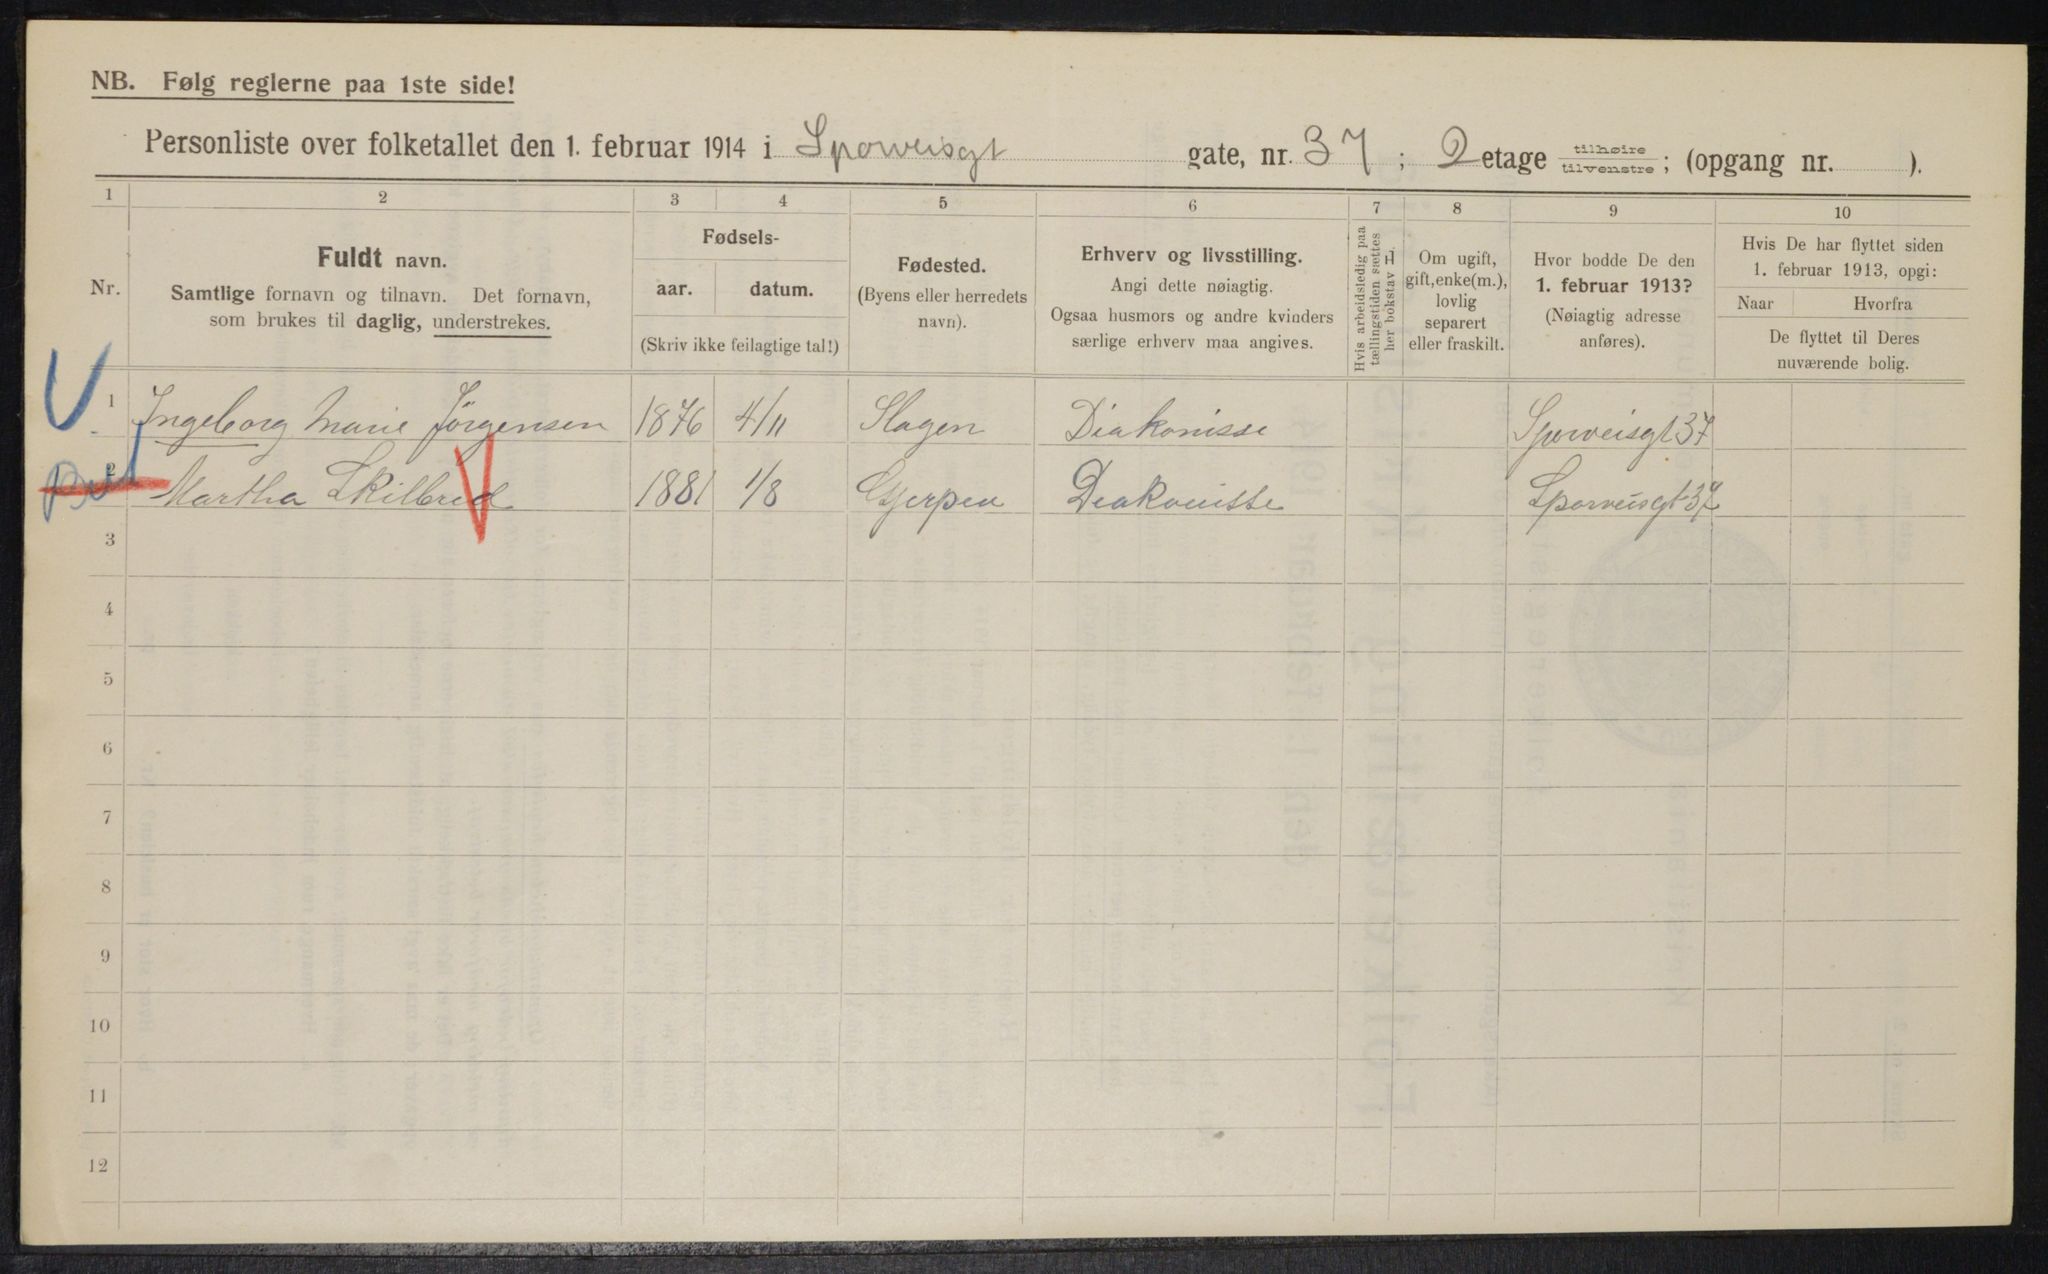 NB. Følg reglerne paa 1ste side!
Personliste over folketallet den 1. februar 1914 i Sporveisgt gate, nr. 37 ; 2 etage tilhøire tilvenstre ; (opgang nr. ).
1 2 3 4 5 6 7 8 9 10
Nr.
Fuldt navn.
Samtlige fornavn og tilnavn. Det fornavn,
som brukes til daglig, understrekes.
Fødsels-
aar. datum.
(Skriv ikke feilagtige tal!)
Fødested.
(Byens eller herredets
navn).
Erhverv og livsstilling.
Angi dette nøiagtig.
Ogsaa husmors og andre kvinders
særlige erhverv maa angives.
Hvis arbeidsledig paa
tællingstiden sættes
her bokstav L.
Om ugift,
gift, enke(m.),
lovlig
separert
eller fraskilt.
Hvor bodde De den
1. februar 1913?
(Nøiagtig adresse
anføres).
Hvis De har flyttet siden
1. februar 1913, opgi:
Naar Hvorfra
De flyttet til Deres
nuværende bolig.
1 Ingeborg Marie Jörgensen 1876 4/11 Slagen Diakonisse Sporveisgt 37
2 Martha Skilbred 1881 1/8 Gjerpen Diakonisse Sporveisgt 37
3
4
5
6
7
8
9
10
11
12